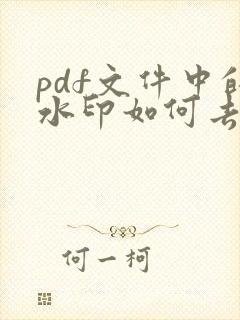 pdf文件中的
水印如何去
何一柯